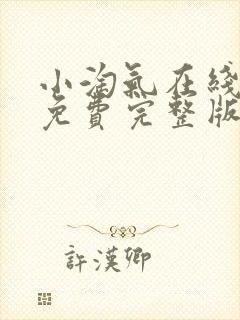 小淘氣在綫
免費完整版
許漢卿